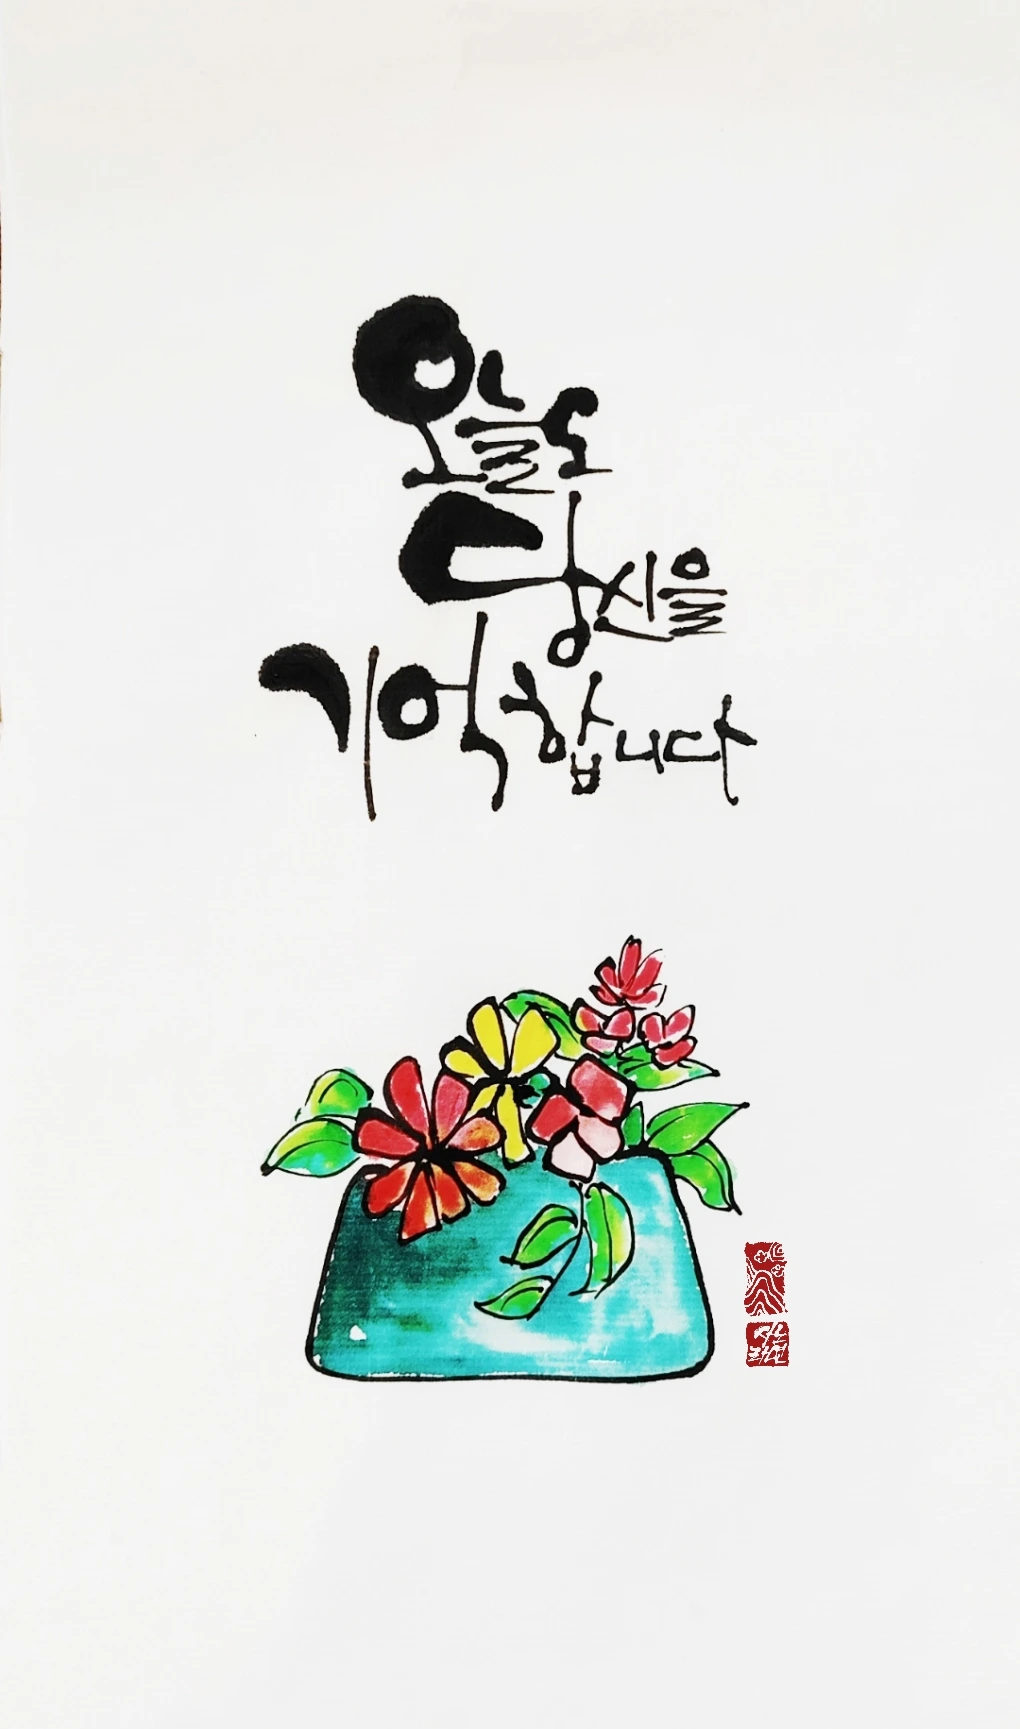 오늘도
당신을
기억합니다